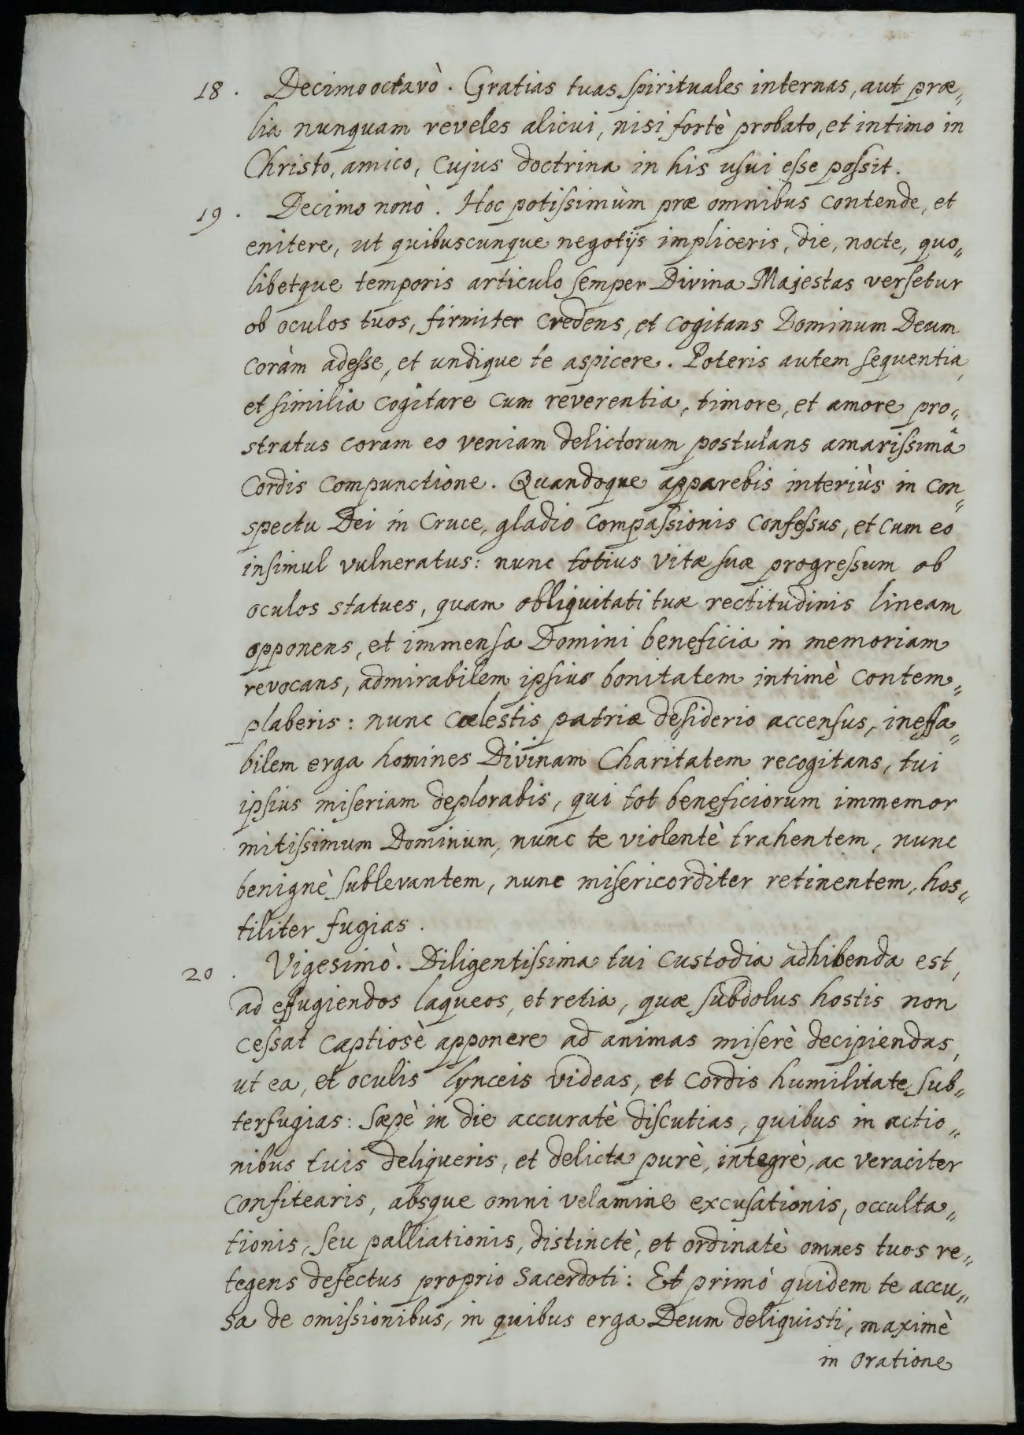 18. Decimo octavò. Gratias tuas spirituales internas, aut præ„
lia nunquam reveles alicui, nisi fortè probato, et intimo in
Christo, amico, cujus doctrina in his usui esse possit.
19. Decimo nonò. Hoc potissimùm præ omnibus contende, et
enitere, ut quibuscunque negotijs impliceris, die, nocte, quo„
libetque temporis articulo semper Divina Majestas versetur
ob oculos tuos, firmiter credens, et cogitans Dominum Deum
coràm adesse, et undique te aspicere. Poteris autem sequentia,
et similia cogitare cum reverentia, timore, et amore pro„
stratus coram eo veniam delictorum postulans amarissimâ
cordis compunctione. Quandoque apparebis interiùs in con„
spectu Dei in Cruce, gladio compassionis confessus, et cum eo
insimul vulneratus: nunc totius vitæ suæ progressum ob
oculos statues, quam obliquitati tuæ rectitudinis lineam
opponens, et immensa Domini beneficia in memoriam
revocans, admirabilem ipsius bonitatem intimè contem„
plaberis: nunc cælestis patriæ desiderio accensus, ineffa„
bilem erga homines Divinam Charitatem recogitans, tui
ipsius miseriam deplorabis, qui tot beneficiorum immemor
mitissimum Dominum, nunc te violentè trahentem, nunc
benignè sublevantem, nunc misericorditer retinentem, hos„
tiliter fugias.
20. Vigesimò. Diligentissima tui custodia adhibenda est,
ad effugiendos laqueos, et retia, quæ subdolus hostis non
cessat captiosè apponere ad animas miserè decipiendas,
ut ea, et oculis lynceis videas, et cordis humilitate sub„
terfugias: sæpè in die accuratè discutias, quibus in actio„
nibus tuis deliqueris, et delicta purè, integrè, ac veraciter
confitearis, absque omni velamine excusationis, occulta„
tionis, seu palliationis, distinctè, et ordinatè omnes tuos re„
tegens defectus proprio Sacerdoti: Et primò quidem te accu„
sa de omissionibus, in quibus erga Deum deliquisti, maximè
in oratione